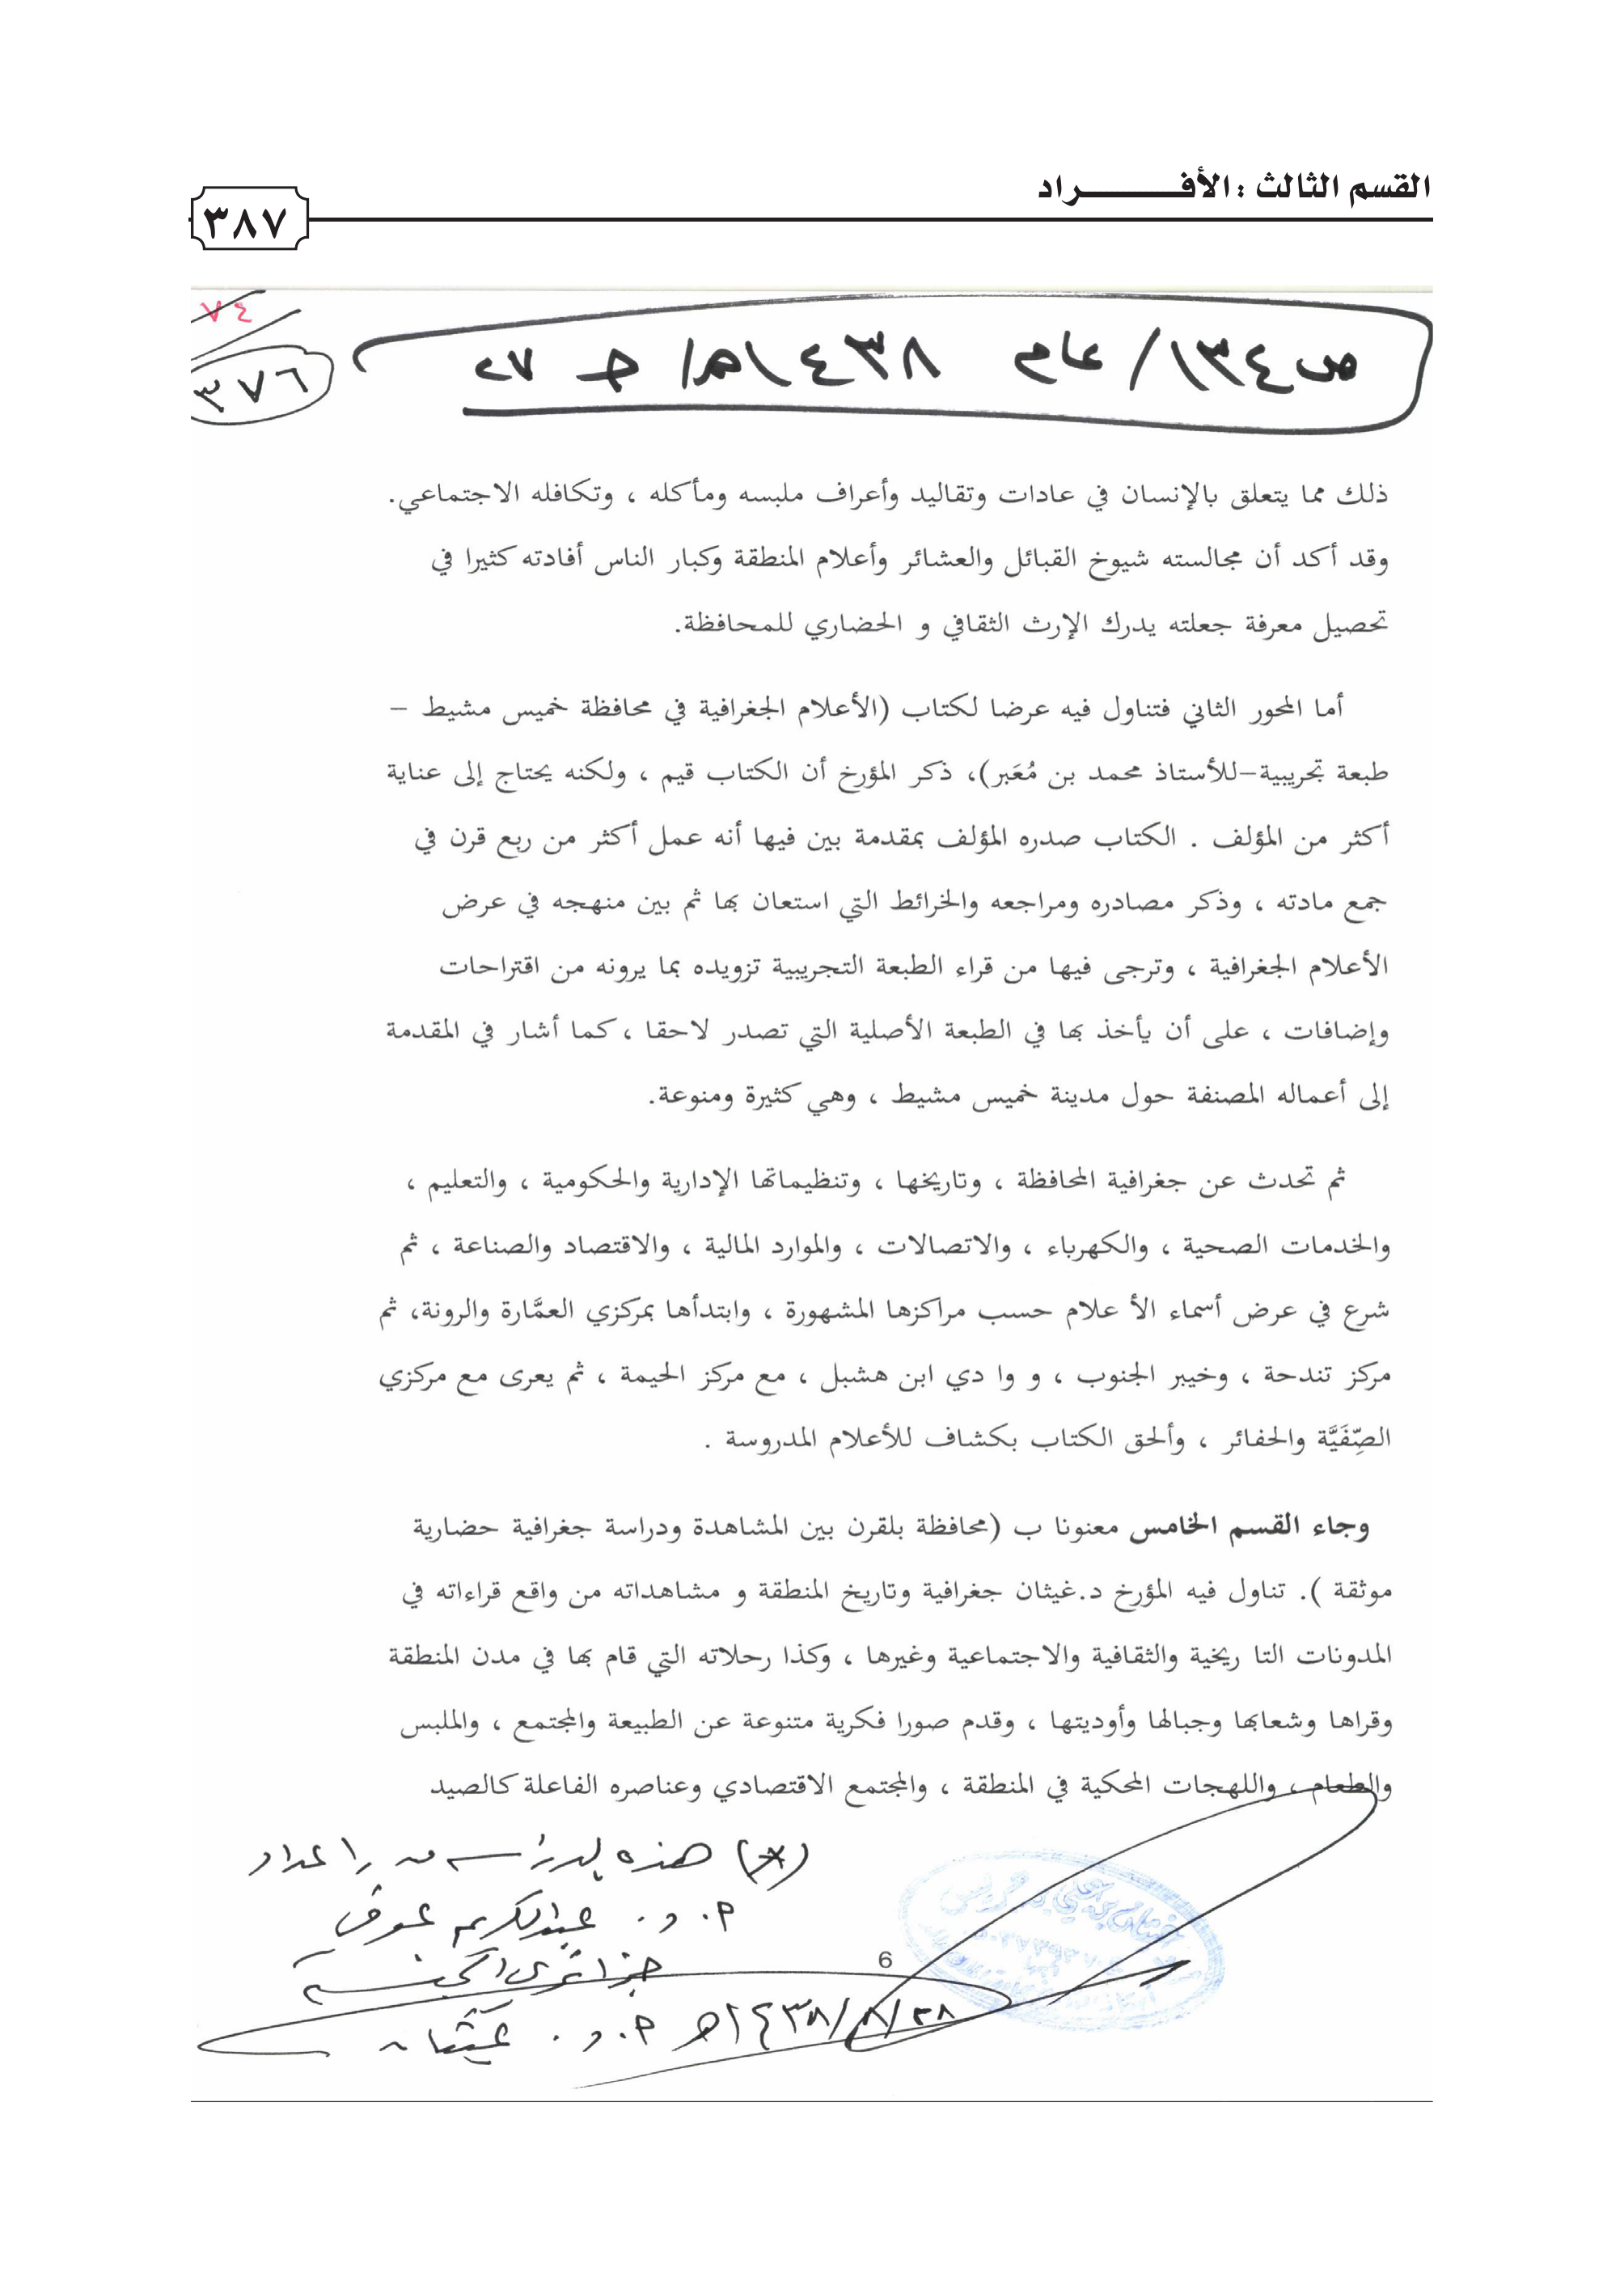 القسم الثالث : الأفـــــــــراد
٣٨٧
٧٤
٣٧٦
عام ١٤٣٨هـ
ذلك مما يتعلق بالإنسان في عادات وتقاليد وأعراف ملبسه ومأكله ، وتكافله الاجتماعي.
وقد أكد أن مجالسته شيوخ القبائل والعشائر وأعلام المنطقة وكبار الناس أفادته كثيرا في
تحصيل معرفة جعلته يدرك الإرث الثقافي و الحضاري للمحافظة.
أما المحور الثاني فتناول فيه عرضا لكتاب (الأعلام الجغرافية في محافظة خميس مشيط –
طبعة تجريبية–للأستاذ محمد بن مُعَبر)، ذكر المؤرخ أن الكتاب قيم ، ولكنه يحتاج إلى عناية
أكثر من المؤلف . الكتاب صدره المؤلف بمقدمة بين فيها أنه عمل أكثر من ربع قرن في
جمع مادته ، وذكر مصادره ومراجعه والخرائط التي استعان بها ثم بين منهجه في عرض
الأعلام الجغرافية ، وترجى فيها من قراء الطبعة التجريبية تزويده بما يرونه من اقتراحات
وإضافات ، على أن يأخذ بها في الطبعة الأصلية التي تصدر لاحقا ، كما أشار في المقدمة
إلى أعماله المصنفة حول مدينة خميس مشيط ، وهي كثيرة ومنوعة.
ثم تحدث عن جغرافية المحافظة ، وتاريخها ، وتنظيماتها الإدارية والحكومية ، والتعليم ،
والخدمات الصحية ، والكهرباء ، والاتصالات ، والموارد المالية ، والاقتصاد والصناعة ، ثم
شرع في عرض أسماء الأ علام حسب مراكزها المشهورة ، وابتدأها بمركزي العمَّارة والرونة، ثم
مركز تندحة ، وخيبر الجنوب ، و وا دي ابن هشبل ، مع مركز الحيمة ، ثم يعرى مع مركزي
الصِّفَيَّة والحفائر ، وألحق الكتاب بكشاف للأعلام المدروسة .
وجاء القسم الخامس معنونا ب (محافظة بلقرن بين المشاهدة ودراسة جغرافية حضارية
موثقة ). تناول فيه المؤرخ د.غيثان جغرافية وتاريخ المنطقة و مشاهداته من واقع قراءاته في
المدونات التا ريخية والثقافية والاجتماعية وغيرها ، وكذا رحلاته التي قام بها في مدن المنطقة
وقراها وشعابها وجبالها وأوديتها ، وقدم صورا فكرية متنوعة عن الطبيعة والمجتمع ، والملبس
والطعام ، واللهجات المحكية في المنطقة ، والمجتمع الاقتصادي وعناصره الفاعلة كالصيد
(*) هذه الدراسة من إعداد
أ. د. عبدالكريم عوفي
جزائري الجنسية
6
٢٨/٨/١٤٣٨هـ أ. د. غيثان